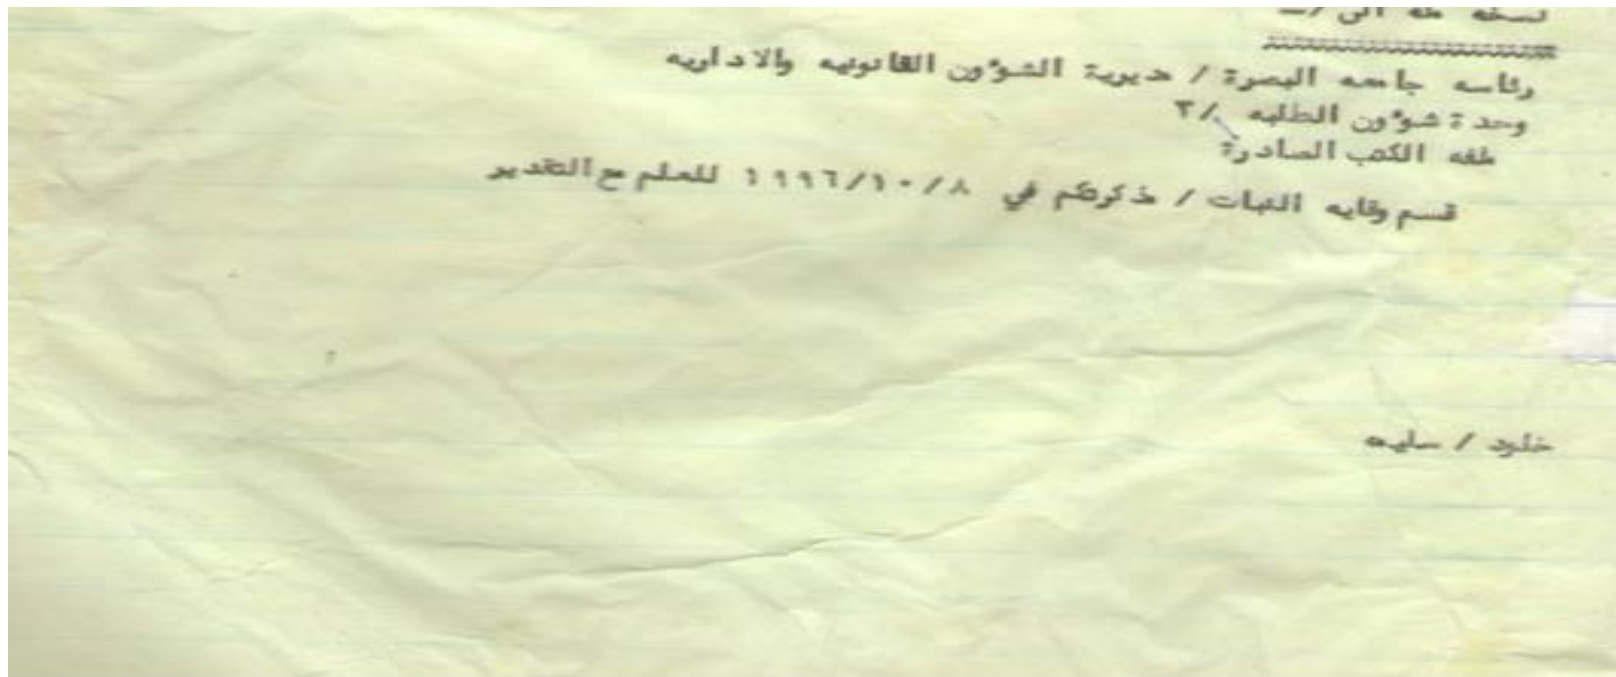 نسخه منه الى /
رئاسه جامعه البصرة / مديرية الشؤون القانونيه والاداريه
وحدة شؤون الطلبه /٣
ملفه الكتب الصادرة
قسم وقايه النبات / مذكرتكم في ١٩٩٦/١٠/٨ للعلم مع التقدير
خلود / سليمه